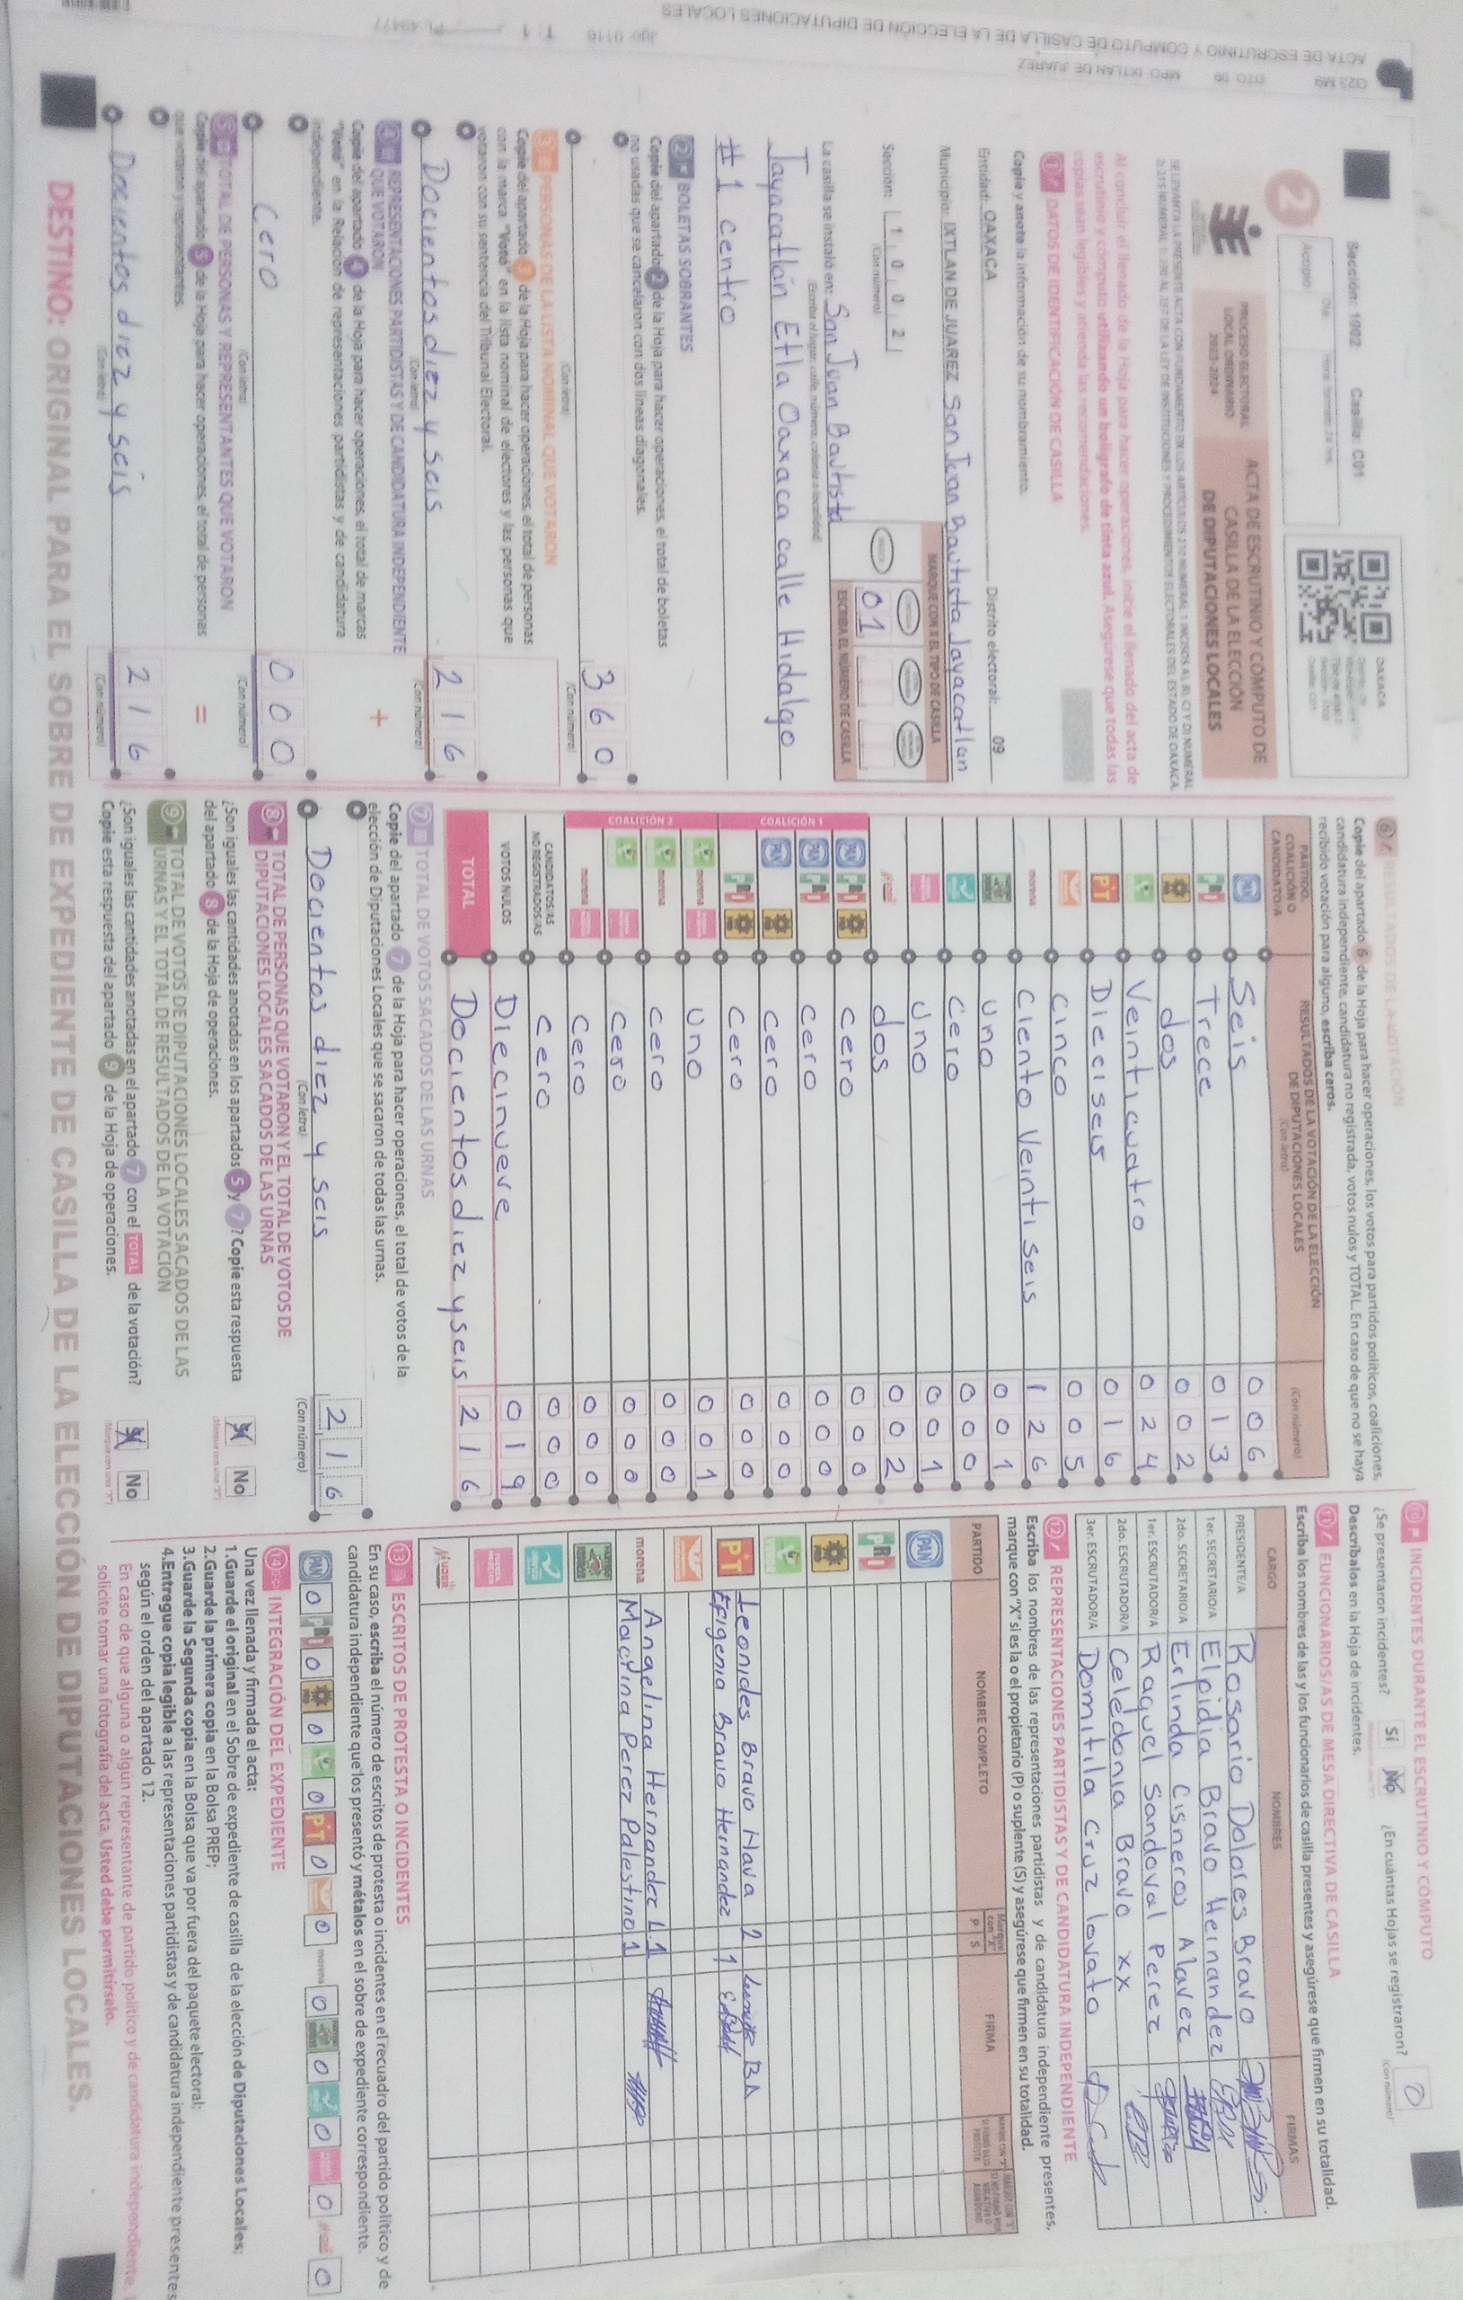 Sección: 1002 Casilla: C01
OAXACA
2
Acopio
PROCESO ELECTORAL
LOCAL ORDINARIO
2023-2024
ACTA DE ESCRUTINIO Y CÓMPUTO DE
CASILLA DE LA ELECCIÓN
DE DIPUTACIONES LOCALES
Al concluir el llenado de la Hoja para hacer operaciones, inicie el llenado del acta de
escrutinio y cómputo utilizando un bolígrafo de tinta azul. Asegúrese que todas las
copias sean legibles y atienda las recomendaciones.
1 DATOS DE IDENTIFICACIÓN DE CASILLA
Copie y anote la información de su nombramiento.
Entidad: OAXACA Distrito electoral: 09
Municipio: IXTLAN DE JUAREZ San Juan Bautista Jayacatlan
Sección: 1 0 0 2
(Con número)
MARQUE CON X EL TIPO DE CASILLA
01
ESCRIBA EL NÚMERO DE CASILLA
La casilla se instaló en: San Juan Bautista
Jayacatlán Etla Oaxaca calle Hidalgo
#1 centro
2 BOLETAS SOBRANTES
Copie del apartado 2 de la Hoja para hacer operaciones, el total de boletas
no usadas que se cancelaron con dos líneas diagonales.
360
(Con letra) (Con número)
3 PERSONAS DE LA LISTA NOMINAL QUE VOTARON
Copie del apartado 3 de la Hoja para hacer operaciones, el total de personas
con la marca "Votó" en la lista nominal de electores y las personas que
votaron con su sentencia del Tribunal Electoral.
Docientos diez y seis 216
(Con letra) (Con número)
4 REPRESENTACIONES PARTIDISTAS Y DE CANDIDATURA INDEPENDIENTE
QUE VOTARON +
Copie del apartado 4 de la Hoja para hacer operaciones, el total de marcas
"Votó" en la Relación de representaciones partidistas y de candidatura
independiente.
Cero 000
(Con letra) (Con número)
5 TOTAL DE PERSONAS Y REPRESENTANTES QUE VOTARON
Copie del apartado 5 de la Hoja para hacer operaciones, el total de personas =
que votaron y representantes.
Docientos diez y seis 216
(Con letra) (Con número)
6 RESULTADOS DE LA VOTACIÓN
Copie del apartado 6 de la Hoja para hacer operaciones, los votos para partidos políticos, coaliciones,
candidatura independiente, candidatura no registrada, votos nulos y TOTAL. En caso de que no se haya
recibido votación para alguno, escriba ceros.
PARTIDO, COALICIÓN O CANDIDATO/A
RESULTADOS DE LA VOTACIÓN DE LA ELECCIÓN
DE DIPUTACIONES LOCALES
(Con letra) (Con número)
PAN Seis 006
PRI Trece 013
PRD dos 002
Veinticuatro 024
PT Dieciseis 016
cinco 005
morena Ciento Veintiseis 126
uno 001
Cero 000
Uno 001
dos 002
COALICIÓN 1
PAN PRI PRD cero 000
PAN PRI cero 000
PAN PRD cero 000
PRI PRD cero 000
COALICIÓN 2
morena uno 001
morena cero 000
cero 000
morena cero 000
CANDIDATOS/AS
NO REGISTRADOS/AS cero 000
VOTOS NULOS Diecinueve 019
TOTAL Docientos diez y seis 216
7 TOTAL DE VOTOS SACADOS DE LAS URNAS
Copie del apartado 7 de la Hoja para hacer operaciones, el total de votos de la
elección de Diputaciones Locales que se sacaron de todas las urnas.
Docientos diez y seis 216
(Con letra) (Con número)
8 TOTAL DE PERSONAS QUE VOTARON Y EL TOTAL DE VOTOS DE
DIPUTACIONES LOCALES SACADOS DE LAS URNAS
¿Son iguales las cantidades anotadas en los apartados 5 y 7? Copie esta respuesta
del apartado 8 de la Hoja de operaciones. Sí No
9 TOTAL DE VOTOS DE DIPUTACIONES LOCALES SACADOS DE LAS
URNAS Y EL TOTAL DE RESULTADOS DE LA VOTACIÓN
¿Son iguales las cantidades anotadas en el apartado 7 con el TOTAL de la votación?
Copie esta respuesta del apartado 9 de la Hoja de operaciones. Sí No
10 INCIDENTES DURANTE EL ESCRUTINIO Y CÓMPUTO
¿Se presentaron incidentes? Sí No ¿En cuántas Hojas se registraron? 0
Descríbalos en la Hoja de incidentes. (Con número)
11 FUNCIONARIOS/AS DE MESA DIRECTIVA DE CASILLA
Escriba los nombres de las y los funcionarios de casilla presentes y asegúrese que firmen en su totalidad.
CARGO NOMBRES FIRMAS
PRESIDENTE/A Rosario Dolores Bravo
1er. SECRETARIO/A Elpidia Bravo Hernandez
2do. SECRETARIO/A Erlinda Cisneros Alavez
1er. ESCRUTADOR/A Raquel Sandoval Perez
2do. ESCRUTADOR/A Celedonia Bravo XX
3er. ESCRUTADOR/A Domitila Cruz lovato
12 REPRESENTACIONES PARTIDISTAS Y DE CANDIDATURA INDEPENDIENTE
Escriba los nombres de las representaciones partidistas y de candidatura independiente presentes,
marque con "X" si es la o el propietario (P) o suplente (S) y asegúrese que firmen en su totalidad.
PARTIDO NOMBRE COMPLETO P S FIRMA
PAN
PRI
PRD
PT Leonides Bravo Nava 2
Efigenia Bravo Hernandez 1
morena Angelina Hernandez L. 1
Macrina Perez Palestino 1
MUJER
13 ESCRITOS DE PROTESTA O INCIDENTES
En su caso, escriba el número de escritos de protesta o incidentes en el recuadro del partido político y de
candidatura independiente que los presentó y métalos en el sobre de expediente correspondiente.
PAN 0 PRI 0 PRD 0 0 PT 0 0 morena 0 0 0 0 0
14 INTEGRACIÓN DEL EXPEDIENTE
Una vez llenada y firmada el acta:
1.Guarde el original en el Sobre de expediente de casilla de la elección de Diputaciones Locales;
2.Guarde la primera copia en la Bolsa PREP;
3.Guarde la Segunda copia en la Bolsa que va por fuera del paquete electoral;
4.Entregue copia legible a las representaciones partidistas y de candidatura independiente presentes
según el orden del apartado 12.
En caso de que alguna o algún representante de partido político y de candidatura independiente
solicite tomar una fotografía del acta, Usted debe permitírselo.
DESTINO: ORIGINAL PARA EL SOBRE DE EXPEDIENTE DE CASILLA DE LA ELECCIÓN DE DIPUTACIONES LOCALES.
ACTA DE ESCRUTINIO Y COMPUTO DE CASILLA DE LA ELECCIÓN DE DIPUTACIONES LOCALES
MPO. IXTLAN DE JUAREZ